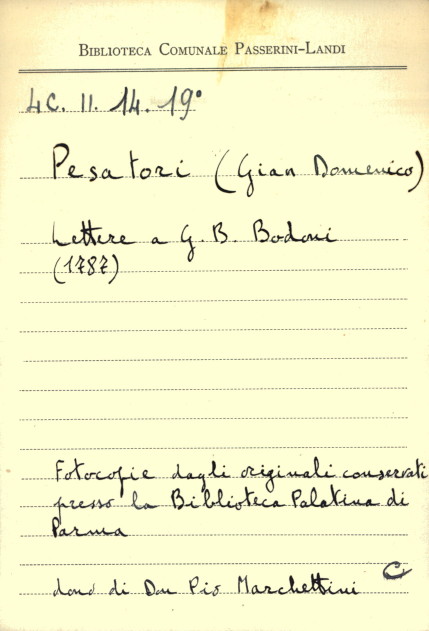 BIBLIOTECA COMUNALE PASSERINI-LANDI
4C. II. 14. 19°
Pesatori (Gian Domenico)
Lettere a G. B. Bodoni
(1787)
Fotocopie dagli originali conservati
presso la Biblioteca Palatina di
Parma
C
dono di Don Pio Marchettini